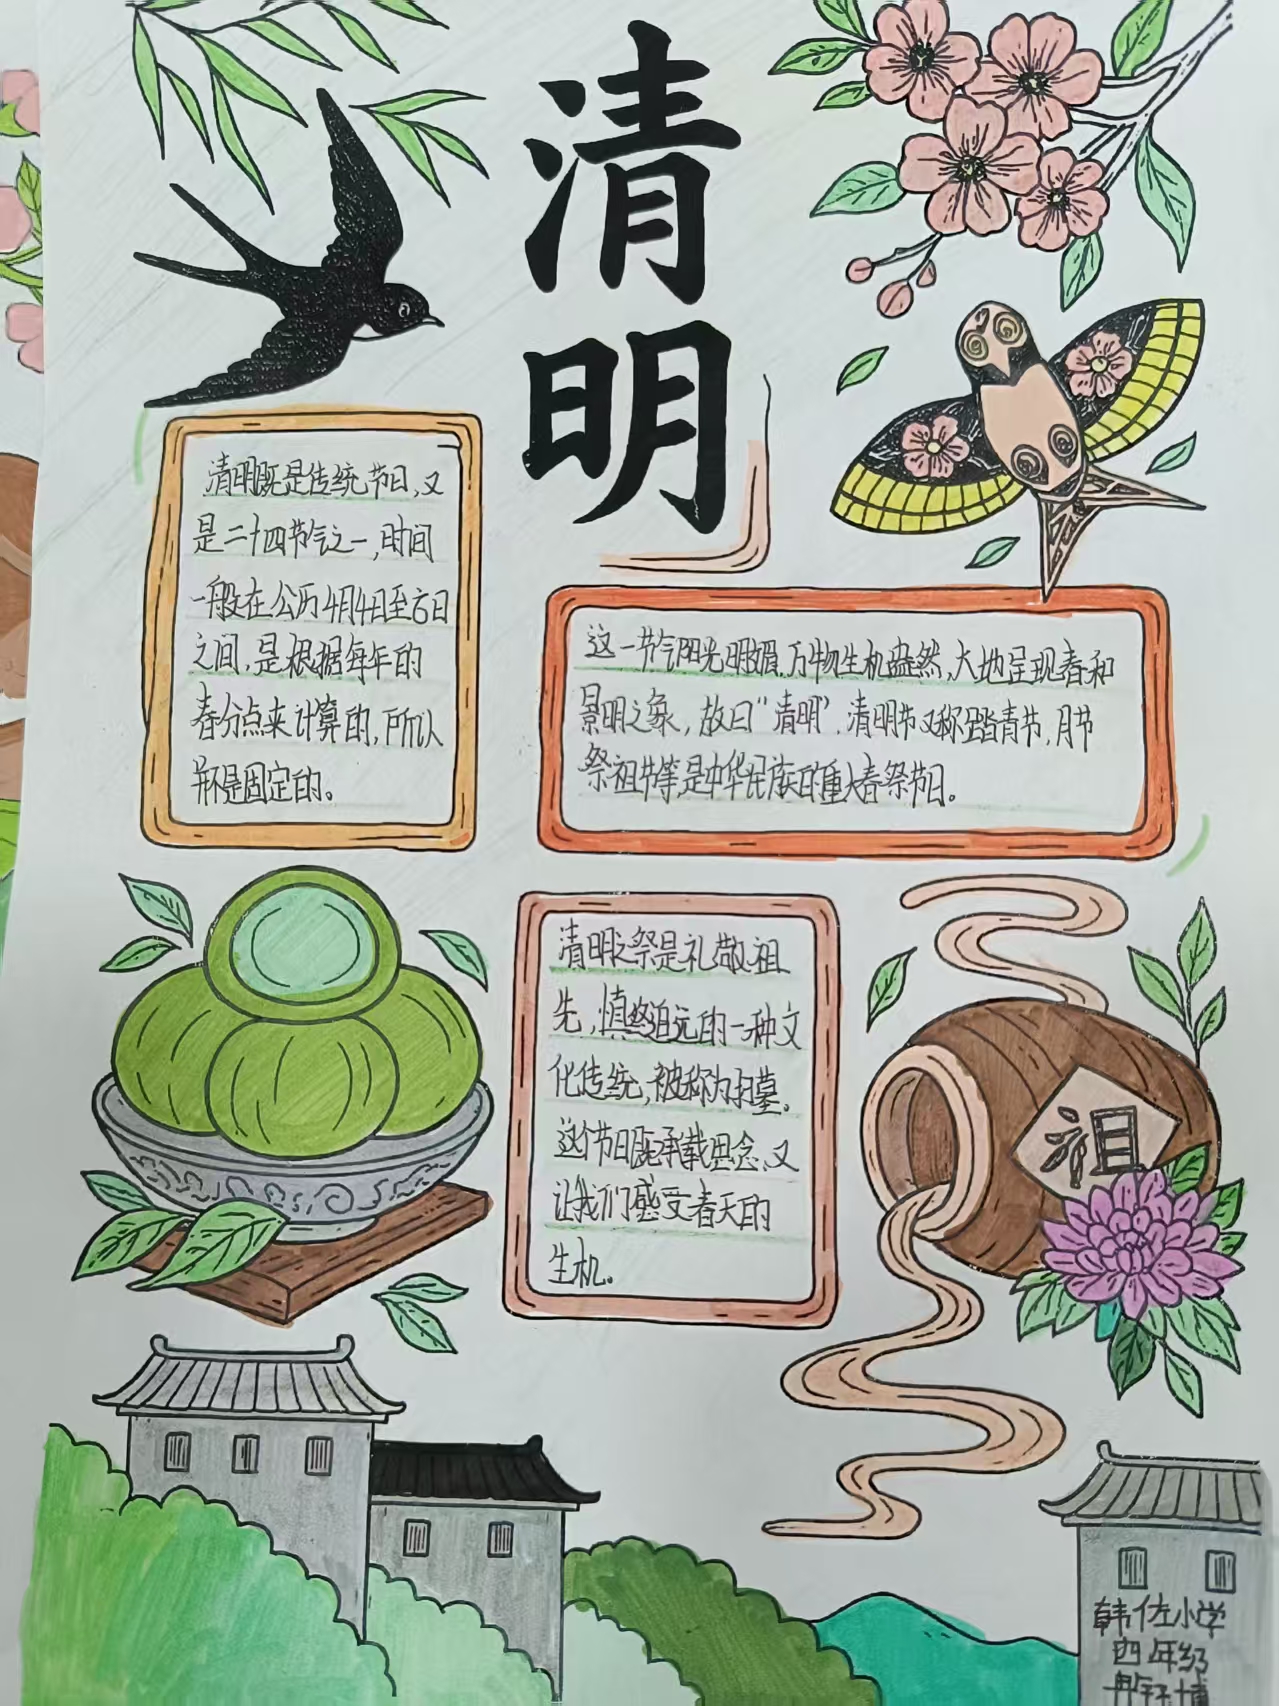 清明
清明既是传统节日,又
是二十四节气之一,时间
一般在公历4月4日至6日
之间,是根据每年的
春分点来计算的,所以
并不是固定的。
这一节气阳光明媚,万物生机盎然,大地呈现春和
景明之象,故曰“清明”。清明节又称踏青节,月节
祭祖节等,是中华民族的重大春祭节日。
清明之祭是礼敬祖
先,慎终追远的一种文
化传统,被称为扫墓。
这个节日既承载思念,又
让我们感受春天的
生机。
祖
韩佐小学
四年级